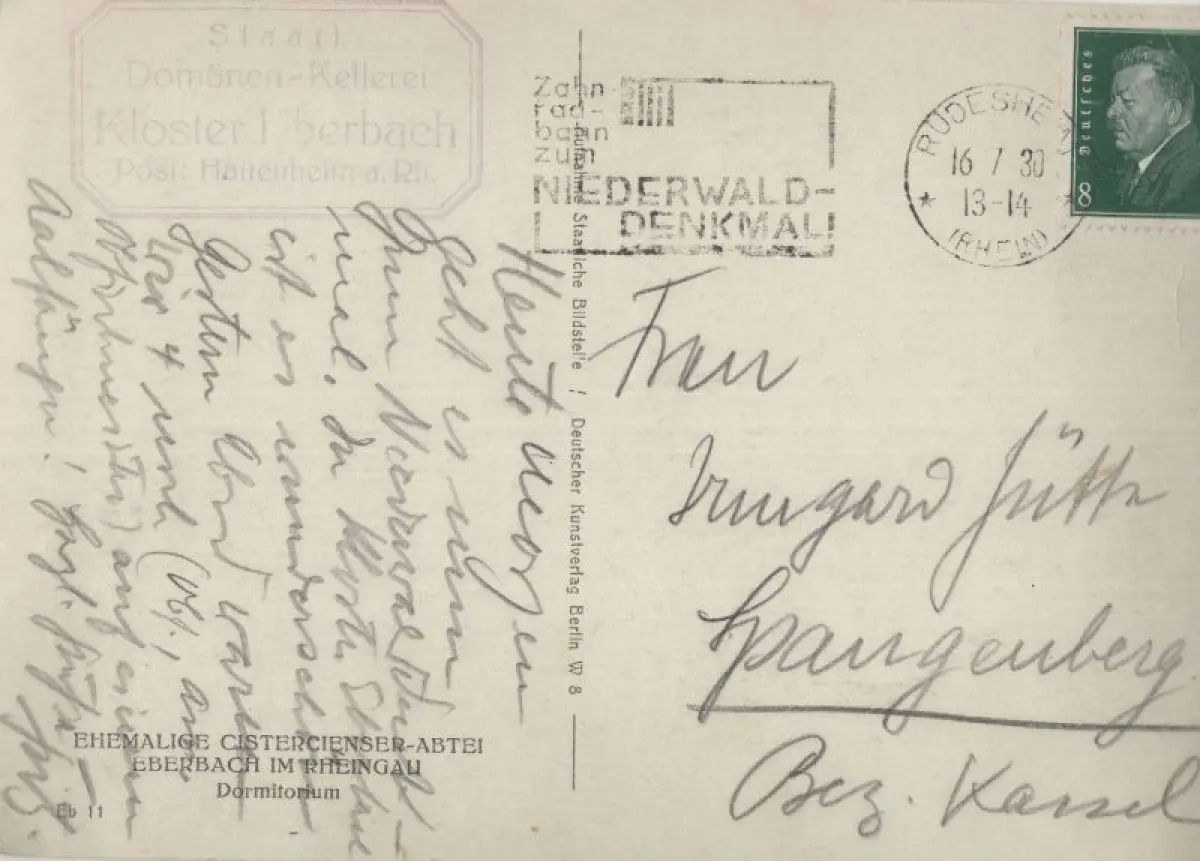 Staatl.
Domänen-Kellerei
Kloster Eberbach
Post: Hattenheim a. Rh.
Zahn-
rad-
bahn
zum
NIEDERWALD-
DENKMAL!
RÜDESHEIM
16 7 30
13-14
(RHEIN)
Deutsches
8
Heute Morgen
geht es zum
Niederwalddenk-
mal. In Kloster Eberbach
ist es wunderschön
Gestern Abend
4 und
auf einem
Aufnahme Staatliche Bildstelle / Deutscher Kunstverlag Berlin W 8
Frau
Irmgard Jütte
Spangenberg
Bez. Kassel
EHEMALIGE CISTERCIENSER-ABTEI
EBERBACH IM RHEINGAU
Dormitorium
Eb 11